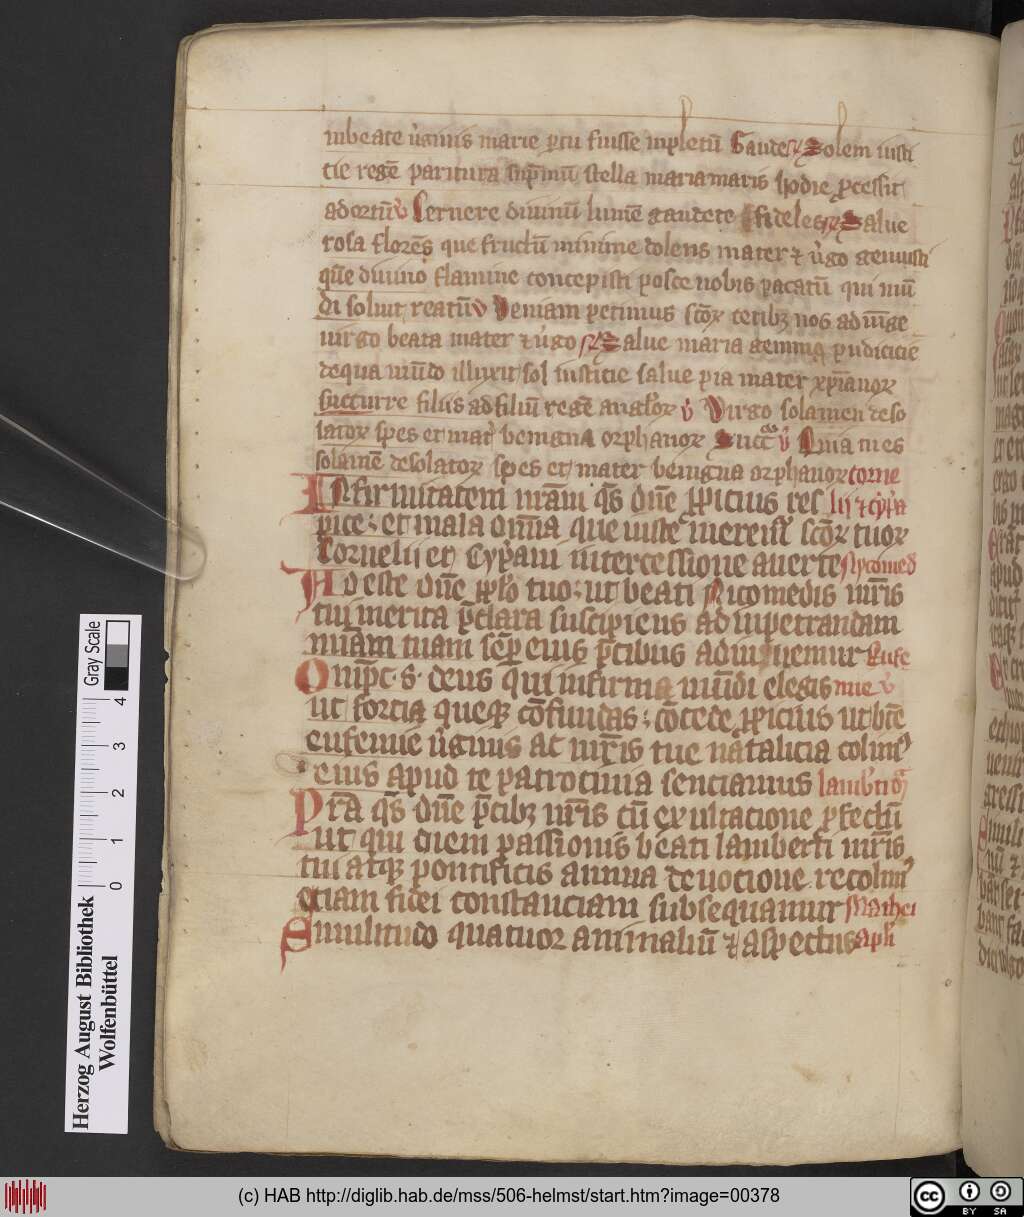 inbeate v̓ginis marie ꝑtu fuisse inpletū Gaude ℟ Solem iusti
tie regē paritura supᵉmū stella maria maris hodie ꝓcessit
ad ortū v̓ Cernere diuinū lumē gaudete fideles ℟ Salue
rosa florēs que fructū minime dolens mater ⁊ v̓go genuisti
quē diuino flamine concepisti posce nobis pacatū qui mū
di soluit reatū v̓ Veniam petimus scōꝝ cetibꝫ nos adiūge
uirgo beata mater ⁊ v̓go ℟ Salue maria gemma pudicicie
dequa mūdo illuxit sol iusticie salue pia mater xp̄ianoꝝ
succurre filiis ad filiū regē angloꝝ v̓ Virgo solamen deso
latoꝝ spes et mat̓ benigna orphanoꝝ v̓ Quia tu es
solamē desolatoꝝ spes et mater benigna orphanoꝝ corne
Infirmitatem nr̄am q̄s dn̄e ꝓpicius res lij ⁊ cyp̓a
pice: et mala om̄ia que iuste meremr̓ scōꝝ tuoꝝ
Cornelii et Cyp̓ani intercessione auerte Nycomed̓
Adeste dn̄e pplo tuo: ut beati Nicomedis mr̄is
tui merita p̄clara suscipiens ad inpetrandam
miām tuam semꝑ eius p̄cibus adiuuemur Eufe
Omp̄c. s. deus qui infirma mūdi elegis mie v̓
ut fortia queqꝫ cōfundas: cōcede ꝓpicius ut btē
eufemie v̓ginis ac mr̄is tue natalicia colim̓
eius apud te patrocinia senciamus lamb̓ti
Pr̄a q̄s dn̄e p̄cibꝫ nr̄is cū exultacione ꝓfectū
ut qui diem passionis beati lamberti mr̄is
tui atqꝫ pontificis annua deuocione recolim̓
eciam fidei constanciam subsequamur Mathei
Similitudo quatuor animaliū ⁊ aspectus apl̓i
Gray Scale
4
3
2
1
0
Herzog August Bibliothek
Wolfenbüttel
(c) HAB http://diglib.hab.de/mss/506-helmst/start.htm?image=00378
cc BY SA